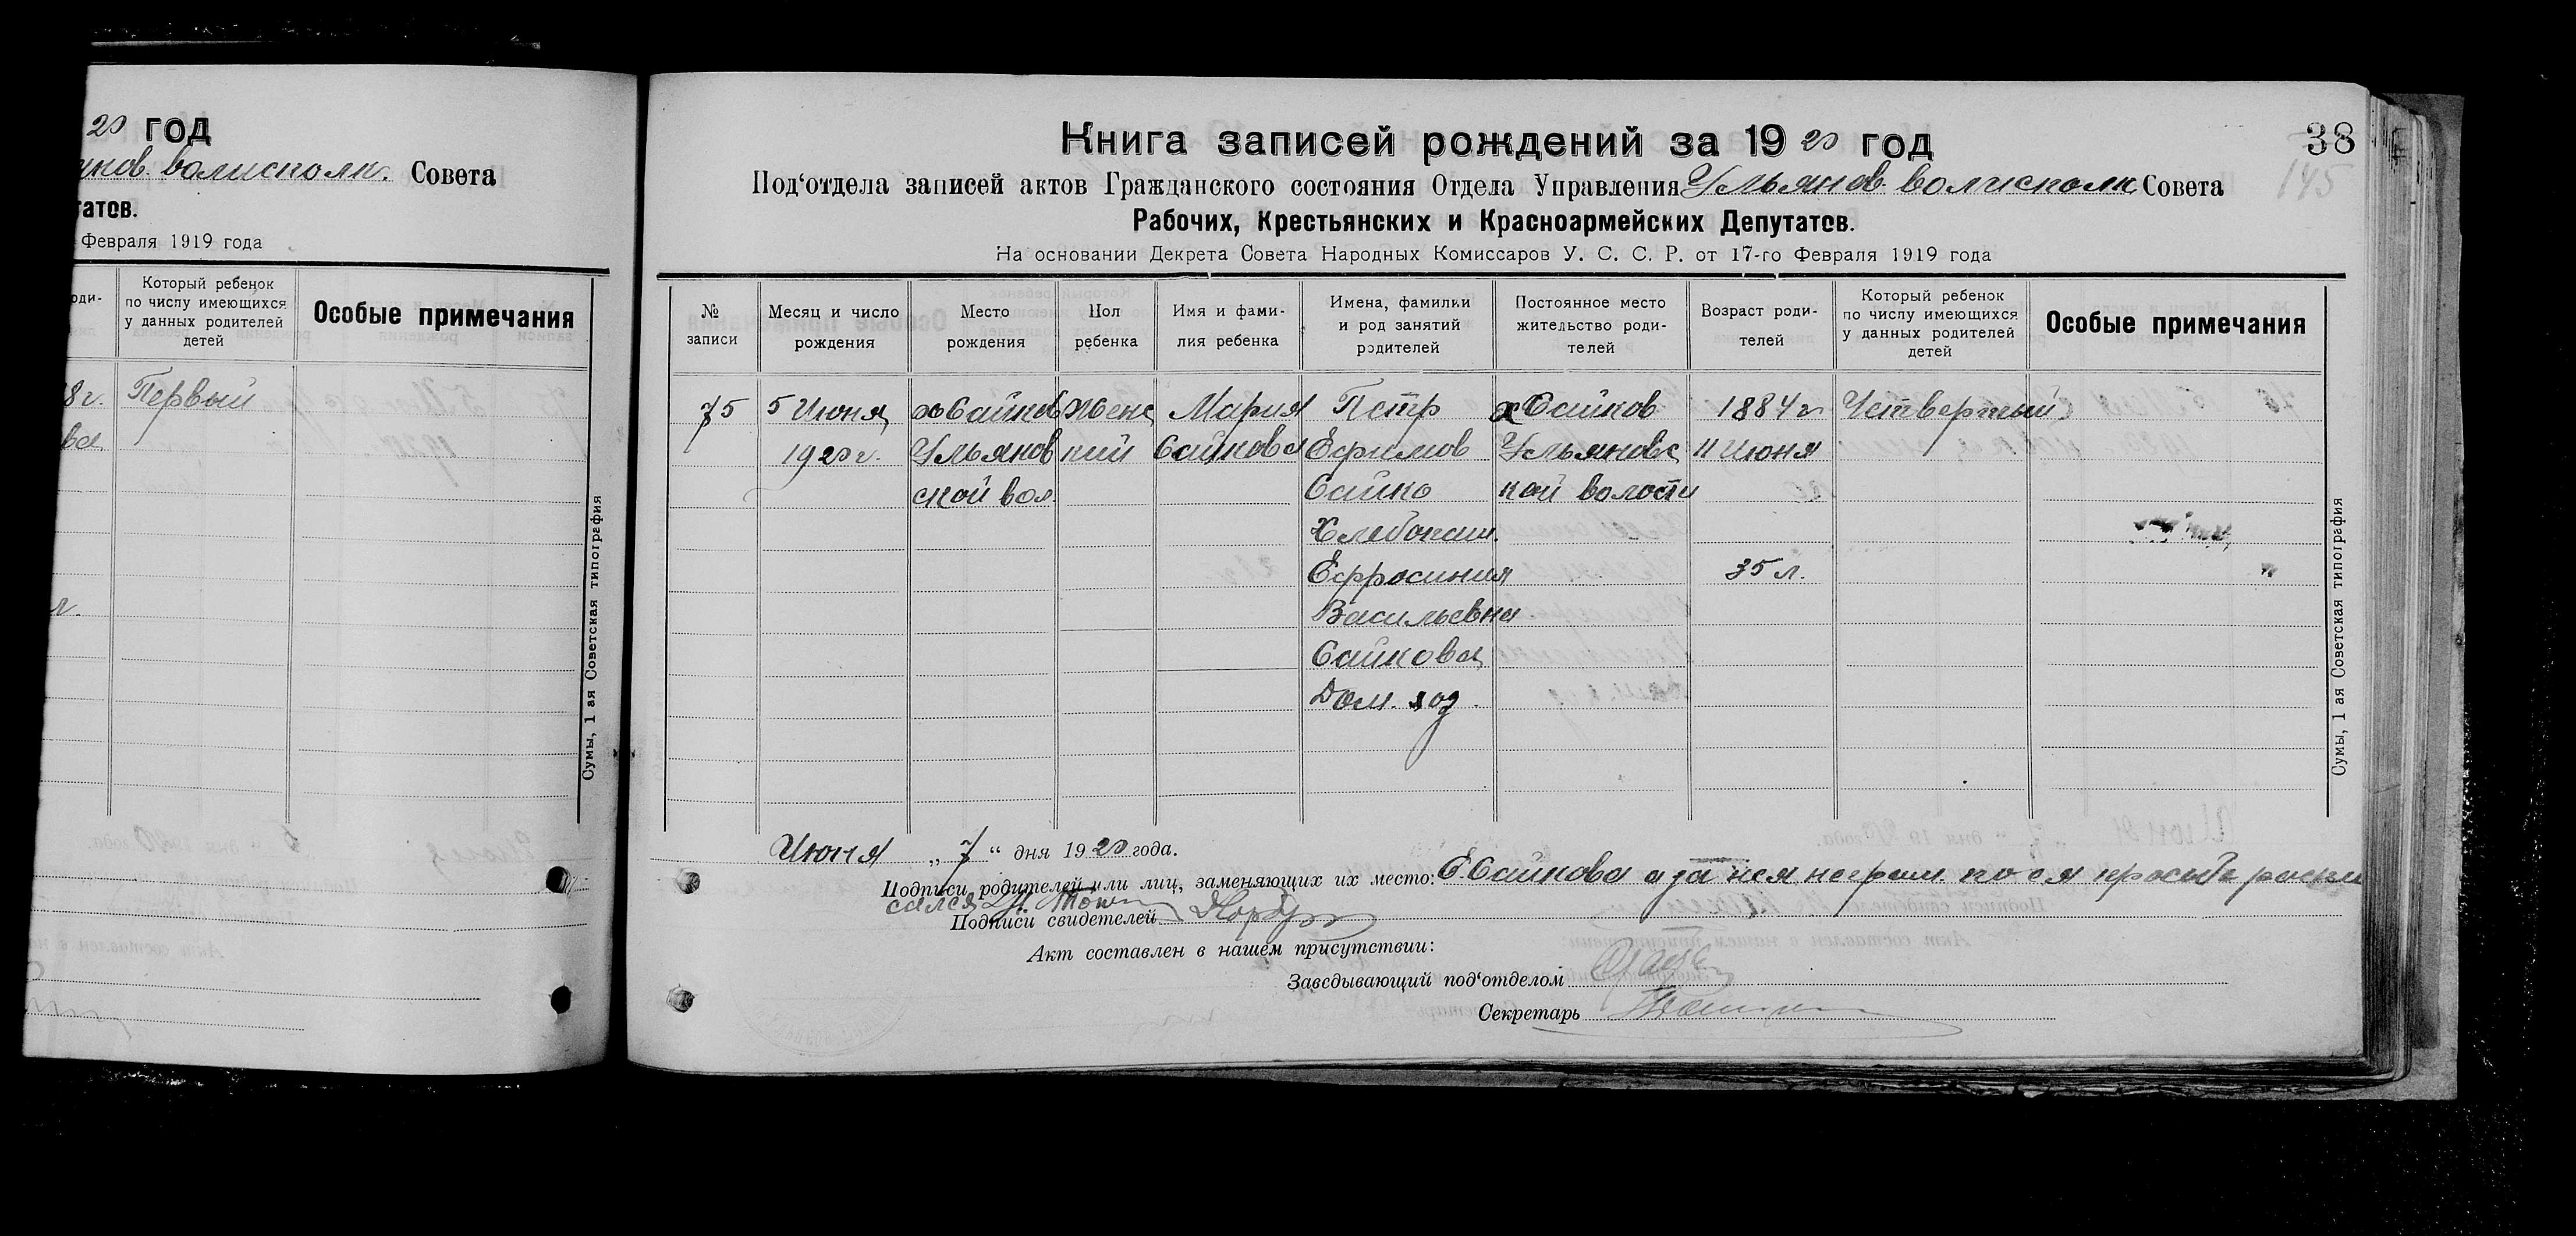 20 год
волисполк. Совета
татов.
Февраля 1919 года
оди-
Который ребенок
по числу имеющихся
у данных родителей
детей
Особые примечания
8 г.
Первый
ва
л.
Сумы, 1 ая Советская типография
38
145
Книга записей рождений за 1920 год
Под‘отдела записей актов Гражданского состояния Отдела Управления Ульянов. волисполк. Совета
Рабочих, Крестьянских и Красноармейских Депутатов.
На основании Декрета Совета Народных Комиссаров У. С. С. Р. от 17-го Февраля 1919 года
№
записи
Месяц и число
рождения
Место
рождения
Пол
ребенка
Имя и фами-
лия ребенка
Имена, фамилии
и род занятий
родителей
Постоянное место
жительство роди-
телей
Возраст роди-
телей
Который ребенок
по числу имеющихся
у данных родителей
детей
Особые примечания
75
5 Июня
1920 г.
х Сайков
Ульянов
ской вол.
Женс
кий
Мария
Сайкова
Петр
Ефимов
Сайко
Хлебопаш.
Ефросиния
Васильевна
Сайкова
Дом. хоз.
х Сайков
Ульяновс
кой волости
1884 г
11 Июня
35 л.
Четвертый
Сумы, 1 ая Советская типография
Июня „7“ дня 1920 года.
Подписи родителей или лиц, заменяющих их место: Е. Сайкова а за нея неграм. по ея просьбе распи
сался
Подписи свидетелей
Акт составлен в нашем присутствии:
Заведывающий под‘отделом
Секретарь